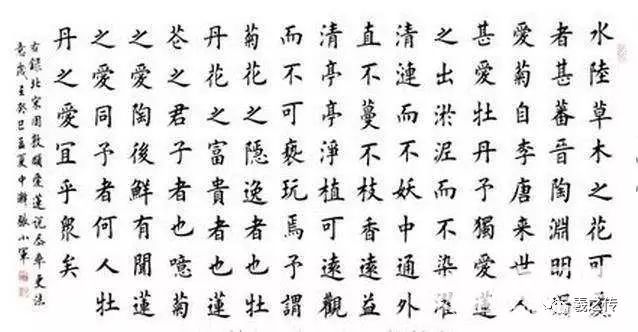 水陸草木之花可愛
者甚蕃晉陶淵明獨
愛菊自李唐来世人
甚愛牡丹予獨愛蓮
之出淤泥而不染濯
清漣而不妖中通外
直不蔓不枝香遠益
清亭亭淨植可遠觀
而不可褻玩焉予謂
菊花之隱逸者也牡
丹花之富貴者也蓮
花之君子者也噫菊
之愛陶後鮮有聞蓮
之愛同予者何人牡
丹之愛冝乎衆矣
右錄北宋周敦頤愛蓮說
癸巳孟夏中瀚張小軍
羲之传